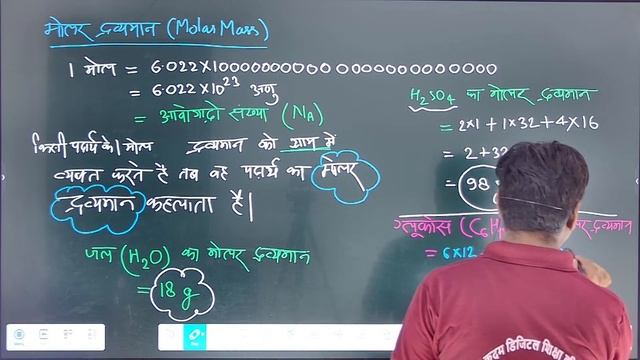 मोलर द्रव्यमान (Molar Mass)
1 मोल = 6.022×10000000000 000000000000000
= 6.022×10²³ अणु
= आवोगाद्रो संख्या (NA)
किसी पदार्थ के 1 मोल द्रव्यमान को ग्राम में
व्यक्त करते है तब वह पदार्थ का मोलर
द्रव्यमान कहलाता है।
जल (H₂O) का मोलर द्रव्यमान
= 18 g
H₂SO₄ का मोलर द्रव्यमान
= 2×1 + 1×32 + 4×16
= 2+32
= 98
ग्लूकोस (C₆H द्रव्यमान
= 6×12
कदम डिजिटल शिक्षा